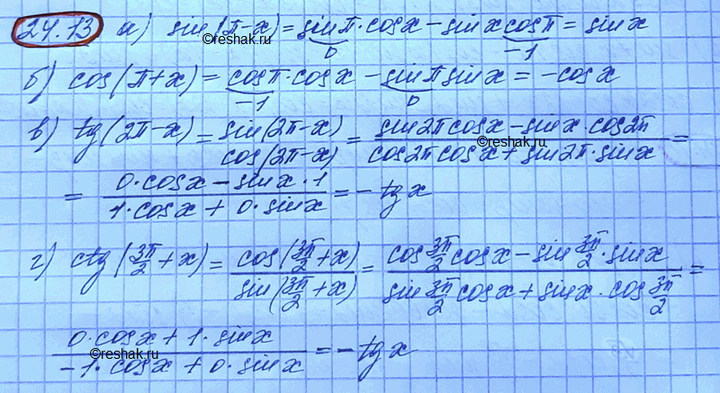 24.13 а) sin(π-x) = sinπ·cosx - sinx cosπ = sinx
0 -1
©reshak.ru
б) cos(π+x) = cosπ·cosx - sinπ sinx = -cosx
-1 0
в) tg(2π-x) = sin(2π-x)/cos(2π-x) = sin2πcosx - sinx·cos2π/cos2πcosx + sin2π·sinx =
©reshak.ru
= 0·cosx - sinx·1/1·cosx + 0·sinx = -tgx
©reshak.ru
г) ctg(3π/2+x) = cos(3π/2+x)/sin(3π/2+x) = cos3π/2 cosx - sin3π/2·sinx/sin3π/2 cosx + sinx·cos3π/2 =
©reshak.ru
0·cosx + 1·sinx/-1·cosx + 0·sinx = -tgx
©reshak.ru